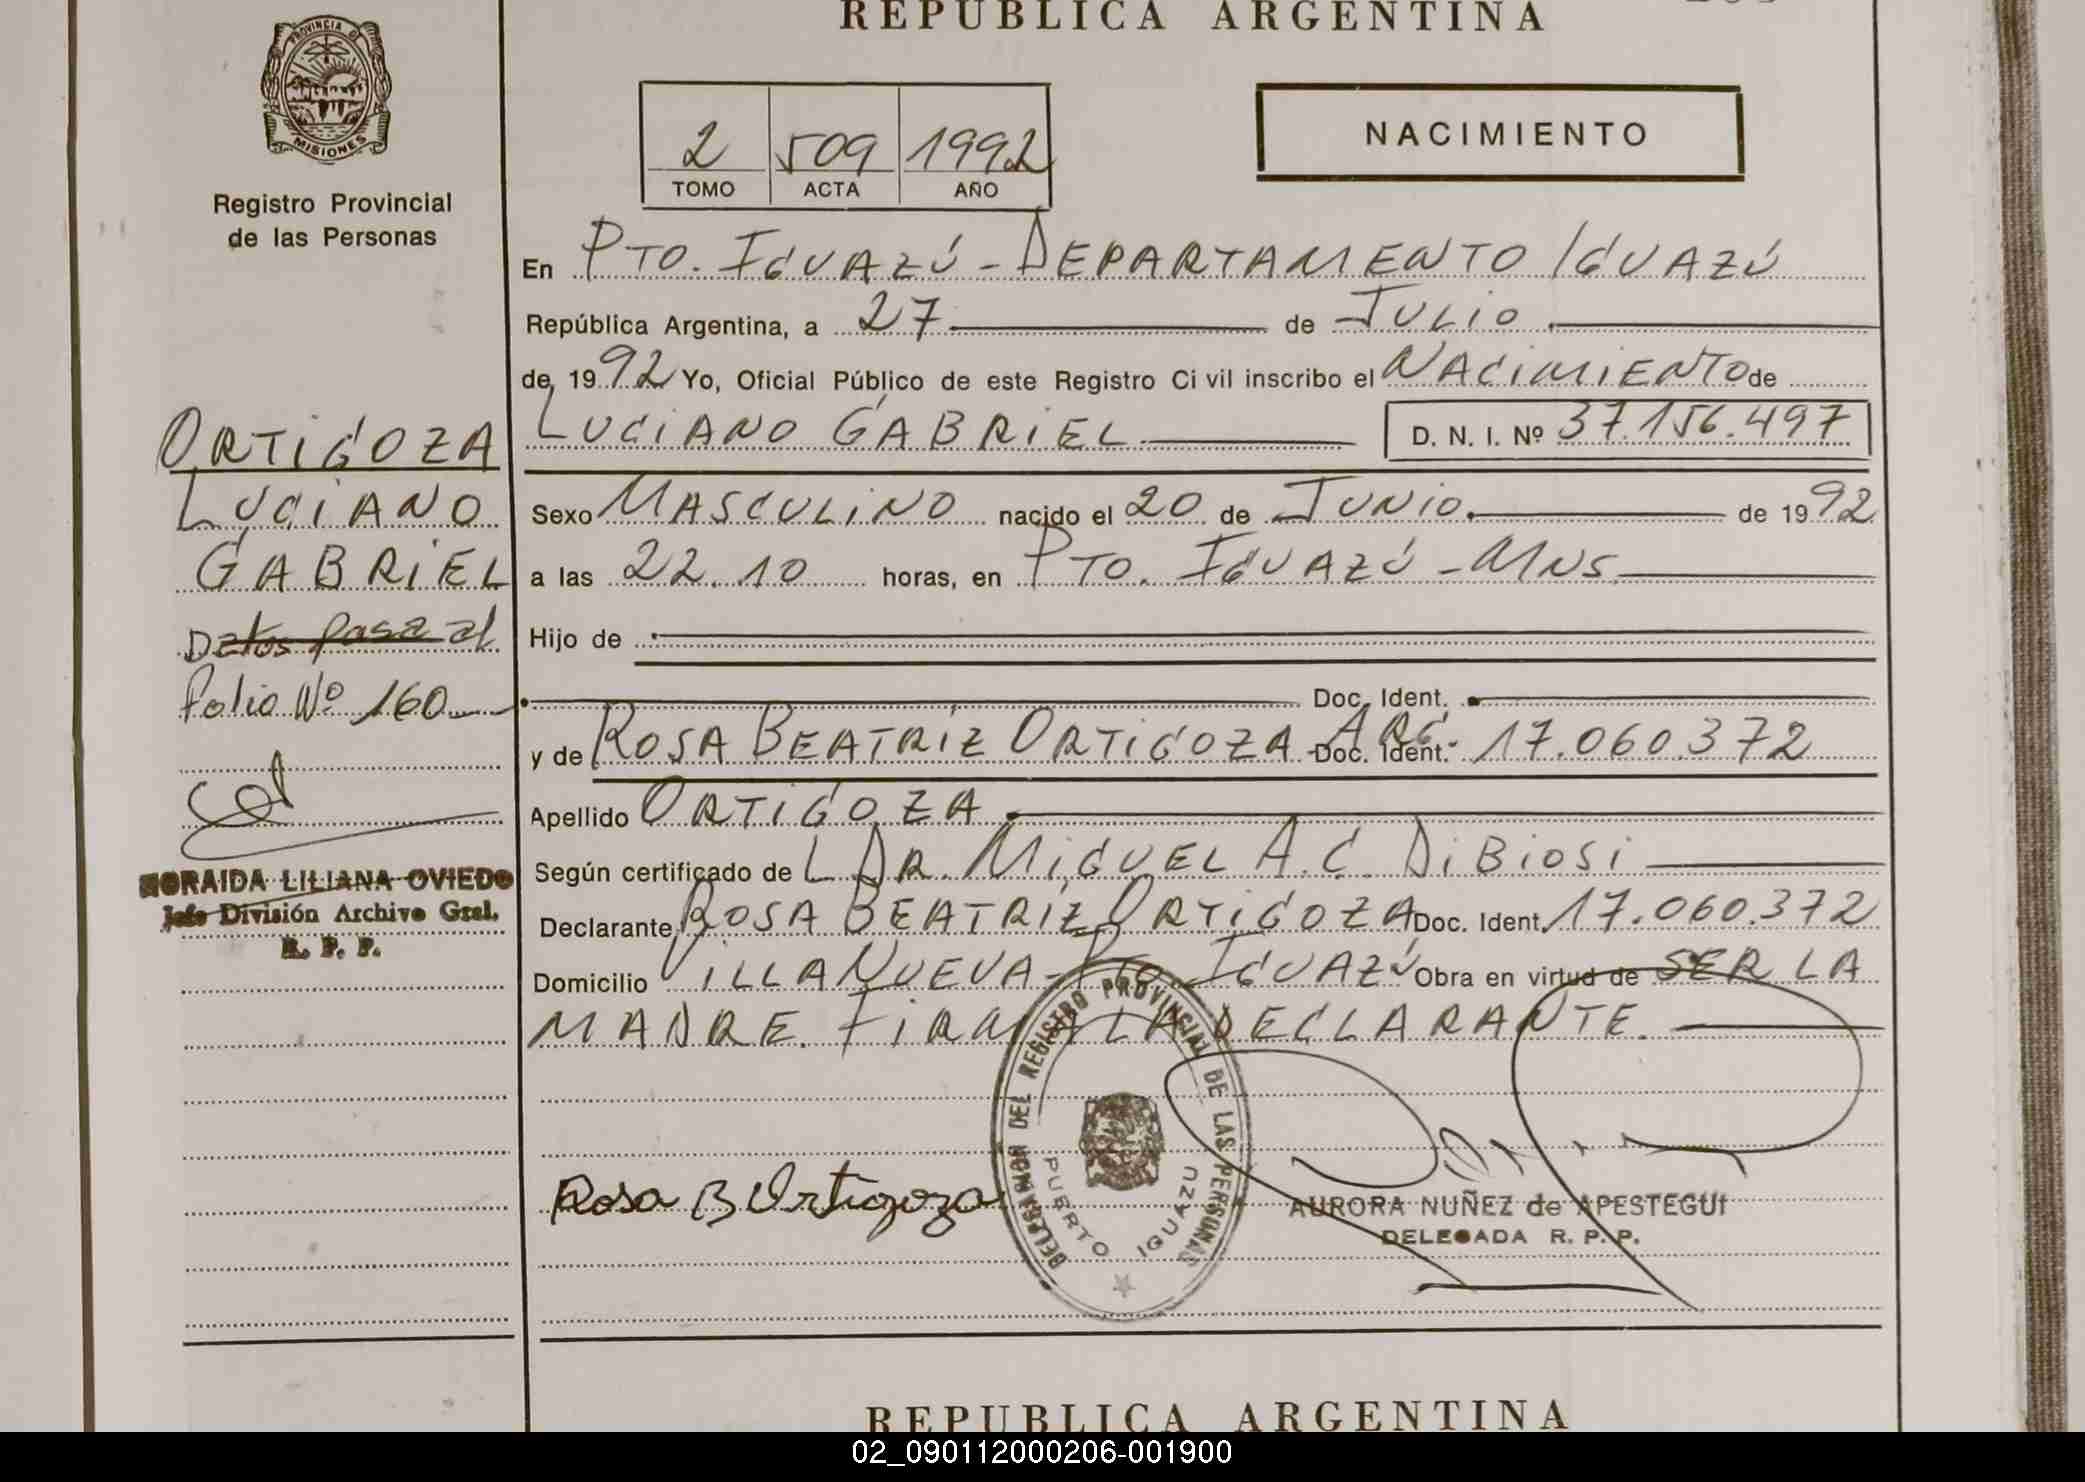 REPUBLICA ARGENTINA
PROVINCIA DE
MISIONES
Registro Provincial
de las Personas
2 509 1992
TOMO ACTA AÑO
NACIMIENTO
En PTO. IGUAZÚ - DEPARTAMENTO IGUAZÚ
República Argentina, a 27 de JULIO
de 1992 Yo, Oficial Público de este Registro Civil inscribo el NACIMIENTO de
LUCIANO GABRIEL D. N. I. Nº 37.156.497
ORTIGOZA
LUCIANO
GABRIEL
Datos pasa al
Folio Nº 160
Sexo MASCULINO nacido el 20 de JUNIO de 1992
a las 22.10 horas, en PTO. IGUAZÚ - MNS
Hijo de
Doc. Ident.
y de ROSA BEATRIZ ORTIGOZA ARG. Doc. Ident. 17.060.372
Apellido ORTIGOZA
Según certificado de L DR. MIGUEL A. C. DIBIOSI
Declarante ROSA BEATRIZ ORTIGOZA Doc. Ident. 17.060.372
Domicilio VILLA NUEVA - PTO IGUAZÚ Obra en virtud de SER LA
MADRE. FIRMA LA DECLARANTE.
ZORAIDA LILIANA OVIEDO
Jefe División Archivo Gral.
R. P. P.
Rosa B Ortigoza
DELEGACION DEL REGISTRO PROVINCIAL DE LAS PERSONAS
PUERTO IGUAZU
AURORA NUÑEZ de APESTEGUI
DELEGADA R. P. P.
REPUBLICA ARGENTINA
02_090112000206-001900